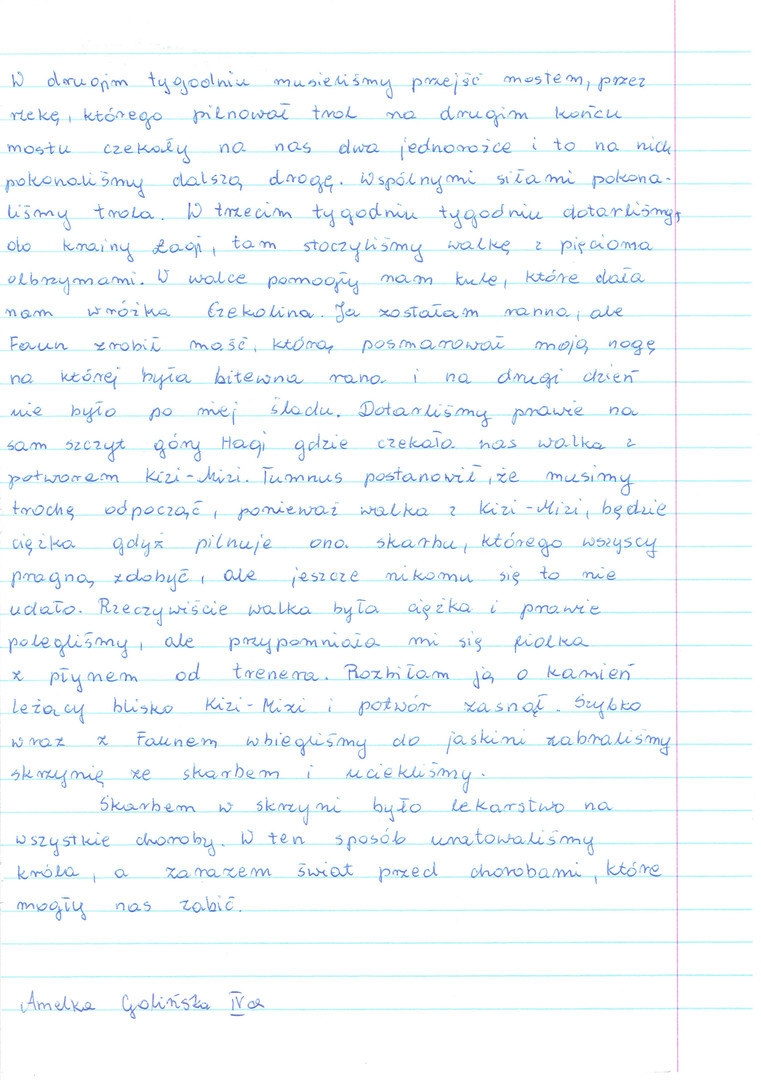 W drugim tygodniu musieliśmy przejść mostem, przez
rzekę, którego pilnował trol na drugim końcu
mostu czekały na nas dwa jednorożce i to na nich
pokonaliśmy dalszą drogę. Wspólnymi siłami pokona-
liśmy trola. W trzecim tygodniu tygodniu dotarliśmy
do krainy Łagi, tam stoczyliśmy walkę z pięcioma
olbrzymami. W walce pomogły nam kule, które dała
nam wróżka Czekolina. Ja zostałam ranna, ale
Faun zrobił maść, którą posmarował moją nogę
na której była bitewna rana i na drugi dzień
nie było po niej śladu. Dotarliśmy prawie na
sam szczyt góry Hagi gdzie czekała nas walka z
potworem Kizi-Mizi. Tumnus postanowił, że musimy
trochę odpocząć, ponieważ walka z Kizi-Mizi, będzie
ciężka gdyż pilnuje ona skarbu, którego wszyscy
pragną zdobyć, ale jeszcze nikomu się to nie
udało. Rzeczywiście walka była ciężka i prawie
polegliśmy, ale przypomniała mi się fiolka
z płynem od trenera. Rozbiłam ją o kamień
leżący blisko Kizi-Mizi i potwór zasnął. Szybko
wraz z Faunem wbiegliśmy do jaskini zabraliśmy
skrzynię ze skarbem i uciekliśmy.
Skarbem w skrzyni było lekarstwo na
wszystkie choroby. W ten sposób uratowaliśmy
króla, a zarazem świat przed chorobami, które
mogły nas zabić.
Amelka Golińska IV a